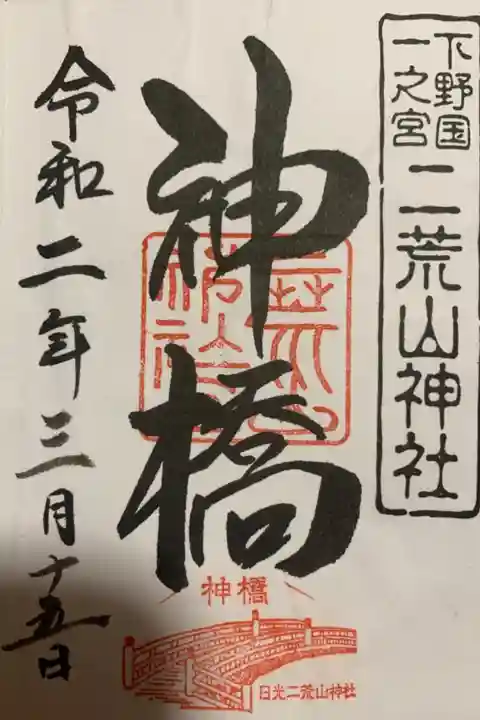 下野国
一之宮
二荒山神社
神橋
二荒山
神社
令和二年三月十五日
神橋
日光二荒山神社